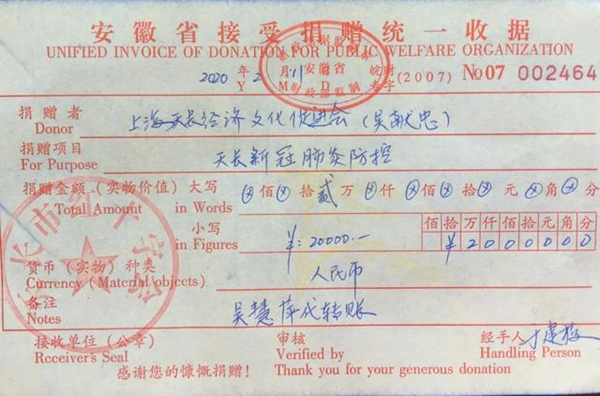 安徽省接受捐赠统一收据
UNIFIED INVOICE OF DONATION FOR PUBLIC WELFARE ORGANIZATION
2020 年 2 月 11 日 安徽省 皖财 (2007) No 07 002464
Y M D 考字
财政部监制
捐赠者 上海天长经济文化促进会(吴献忠)
Donor
捐赠项目 天长新冠肺炎防控
For Purpose
捐赠金额(实物价值) 大写 佰 拾贰万 仟 佰 拾 元 角 分
Total Amount in Words
小写 佰拾万仟佰拾元角分
in Figures ¥:20000.— ¥2000000
货币(实物)种类 人民币
Currency (Material objects)
备注 吴慧萍代转账
Notes
接收单位(公章) 审核 经手人
Rcceiver's Seal Verified by Handling Person
感谢您的慷慨捐赠! Thank you for your generous donation
长市红十字会